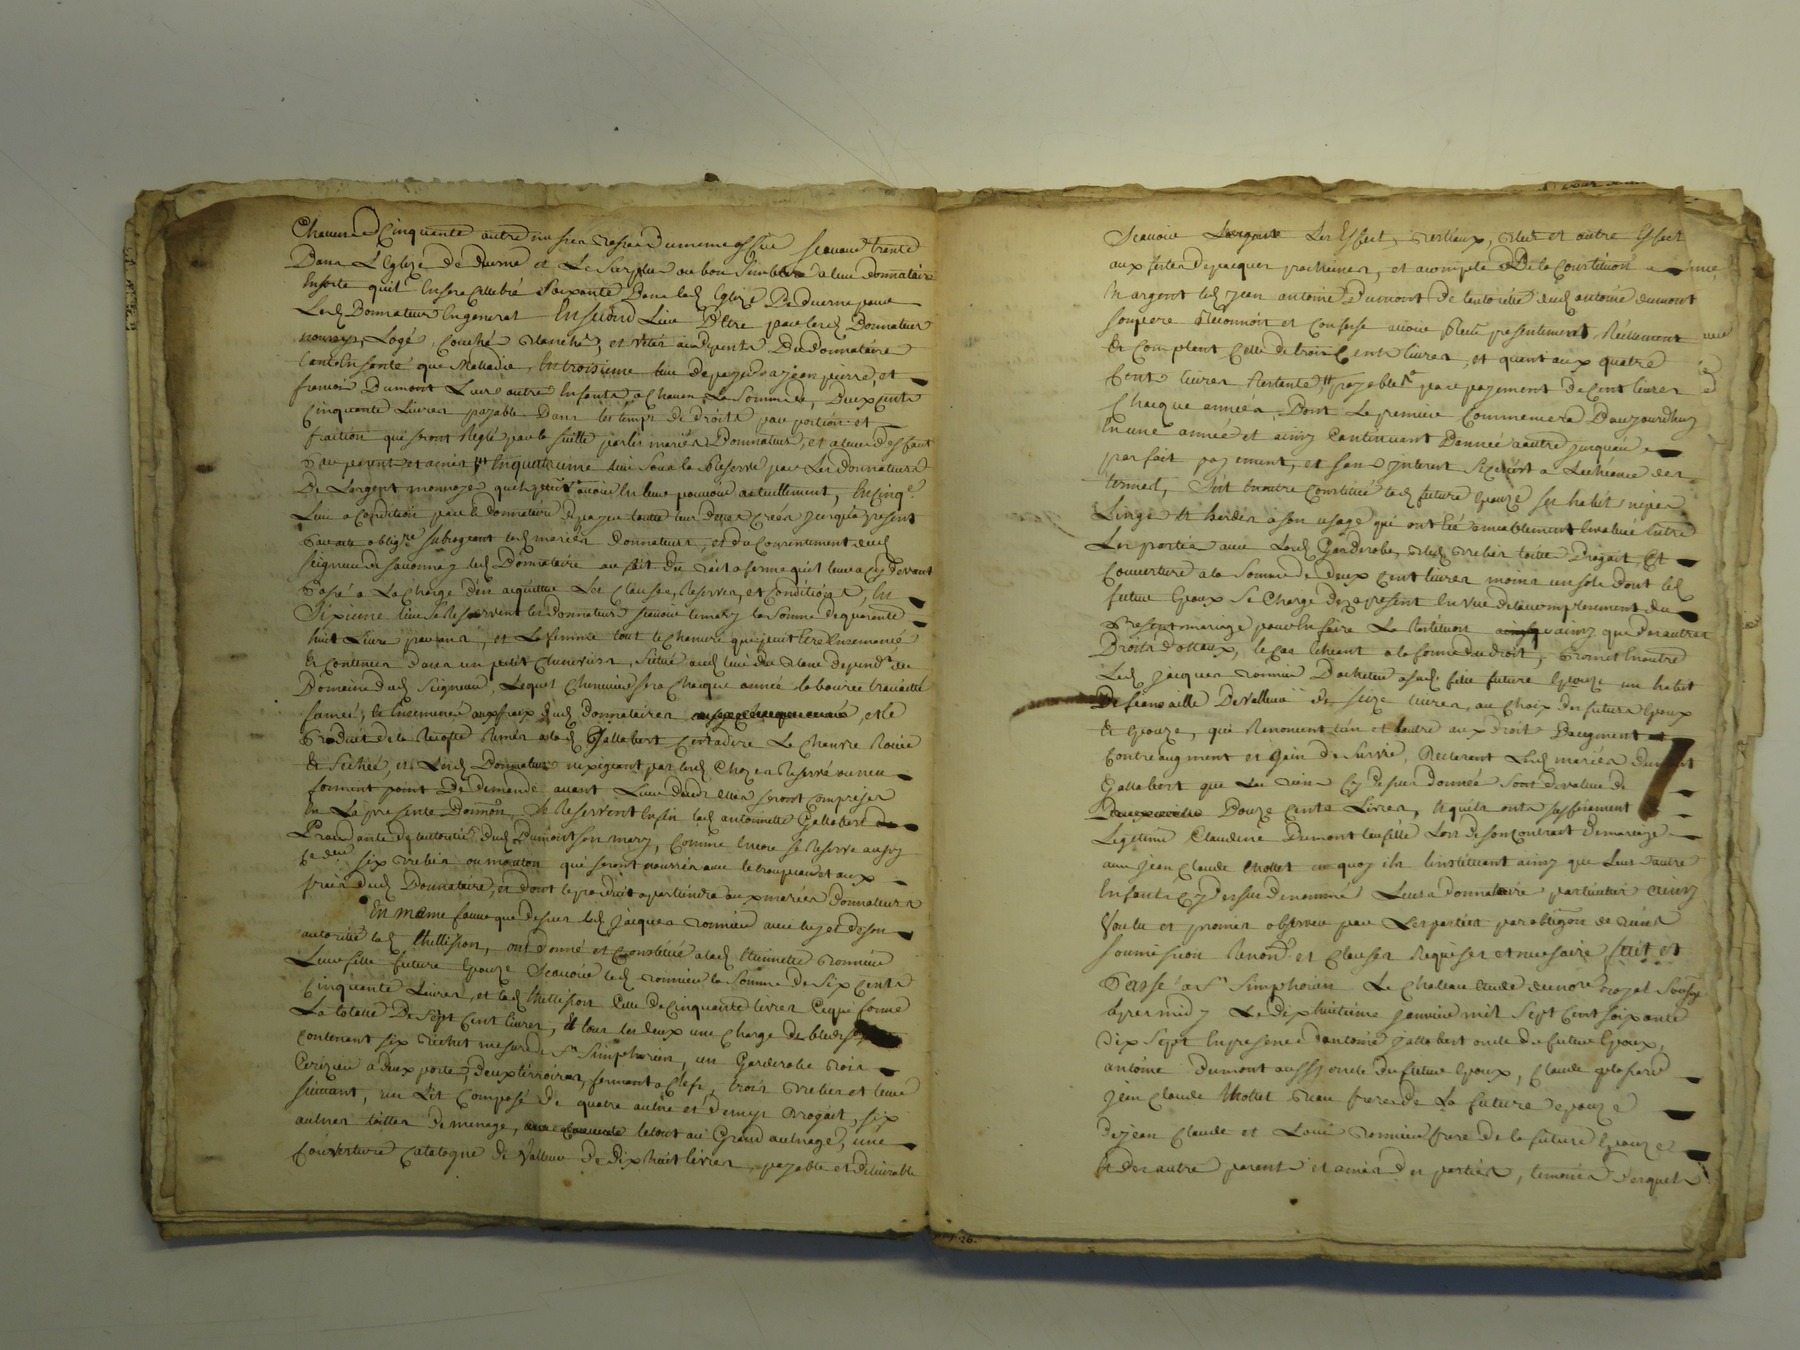 Chacun Cinquante autre messes basses du meme office scavoir trente
Dans L'Eglize de Duerne et Le Surplus au bon plaisir dudit donnataire
Ensorte quil En sera Cellebré Soixante Dans lad Eglize De Duerne pour
Lesd Donnateur En general En second Lieu D'Etre par lesd Donnateur
nourris, Logé, Couché Blanchi, et vetus aux depents Du donnataire
tant En Santé que Malladie, En troisieme lieu de payer a jean pierre, et
francois Dumont Leur autre Enfants a Chacun La Somme de Deux Cents
Cinquante Livres payable Dans les temps de droits par portion et
fraction qui seront Reglé par la suitte par les mariés Donnateur, et a leur deffaut
par parents et amis, En quatrieme lieu Sous la Reserve par Les donnateurs
De Largent monnoyé quils peuvent avoir En leur pouvoir actuellement, En Cinqe
Lieu a Condition par le donnataire de payer toutte leur dettes Créés jusqua present
seigneur de Savonnay led Donnataire au fait du Bail a ferme quil leur a cy devant
Passé a La Charge d'en acquitter Les Clauses, Reserves, et Conditions, En
Sixieme lieu Se Reservent les donnateurs scavoir le mary la Somme de quarante
huit Livre par an, et La femme tout le Chanvre
Et Continuer dans un petit Chenevier, Situé aud lieu
Domaine dud Seigneur, Lequel Chenevier sera Chacque année labouré travaillé
fumé, Et Ensemencé aux fraix dud donnataire et le
Produit de la Recolte Remis a lad Gallabert Cest adire Le Chanvre Rouie
Et Seché, et Lesd Donnateur nexigeant pas lesd Chozes Reservé ou nen
formant point De demande avant Leur decés Elles seront Comprises
En La presente Donnon, Se Reservent Enfin lad antoinette Gallabert
Procedante de lautorité dud Dumont son mary, Comme Encore se Reserve aussy
six Brebis ou mouton qui seront nourris avec le troupeau et aux
fraix dud Donnataire, et dont le produit apartiendra aux mariés donnateurs
En meme faveur que dessus led jacques Bonnier avec luy et de son
autorité lad Thellison, ont donné et Constitué a lad Etiennette Bonnier
Leur fille future Epouze Scavoir led Bonnier la Somme de Six Cents
Cinquante Livres, et lad Thellison Celle de Cinquante livres Ce qui forme
La totalle De Sept Cent livres, Et tous les deux une Charge de bled
Contenant six Bichet mesure de St Simphorien, un Garderobe Bois
Cerizier a deux portes, deux tirroires, fermant a Clefs, trois Brebis et leur
Suivant, un Lit Composé de quatre aulne et demye Drogait, six
aulnes toilles De menage, le tout au Grand aulnage, une
Couverture Catalogne de Valleur De Dix huit livres, payable et delivrable
Scavoir Les Effect, Bestiaux, Bled et autre Effect
aux fetes de pacques prochaines, et acompte De la Constitution
En argent led jean antoine Dumont de lautorité dud antoine dumont
son pere Reconnoit et Confesse avoir Receu presentement, Réelement
Et Comptant Celle de trois Cents livres, et quant aux quatre
Cent livres Restante, payable par payement de Cent livres
Chacque année, Dont Le premier Commencera D'aujourdhuy
En une année et ainsy Continuant D'année a autre jusqua
parfait payement, et sans Interet Si cen'est a Lecheance des
termes, S'est En outre Constitué lad future Epouze Ses habits nipes
Linge Et hardes a Son usage qui ont Eté amiablement Evalué Entre
Les parties avec Lesd Garderobe, Bled Brebis toille Drogait, Et
Couverture a la Somme de Deux Cent livres moins un sole dont led
futur Epoux Se Charge dezapresent En vue de laccomplissement du
Present mariage pour En faire La Restitution ainsy que des autres
Droits dotaux, le Cas Echeant a la forme du droit, Promet En outre
Led jacques Bonnier D'acheter a sad fille future Epouze un habit
De fiansaille De Valleur de seize livres, au Choix des futurs Epoux
Et Epouze, qui Renoncent l'un et lautre aux droits Daugment et
Contre augment et Gain de Survie, Declarant Lesd mariés Dumont
Gallabert que Les Biens Cy dessus donnée sont de valeur de
Douze Cents Livres, Et quils ont suffisament
Legitimé Claudine Dumont leur fille Lors de son Contrait De mariage
avec jean Claude Mollet en quoy ils linstituent ainsy que Leurs autre
Enfants Cy dessus denommé Leurs donnataire particulier ainsy
Voulu et promis observer par Les parties par obligon de Biens
soumission Renonon et Clauses Requises et necessaire fait et
Passé a St Simphorien Le Château Etude du nore Royal Soussé
apres midy Le dix huitieme janvier mil Sept Cent soixante
Dix Sept En presence d'antoine jallabert oncle du futur Epoux,
antoine Dumont aussy oncle du futur Epoux, Claude
jean Claude Mollet Beau frere de La future epouze
De jean Claude et Loüis Bonnier frere de la future Epouze
Et des autre parents et amis des parties, temoins Lesquels